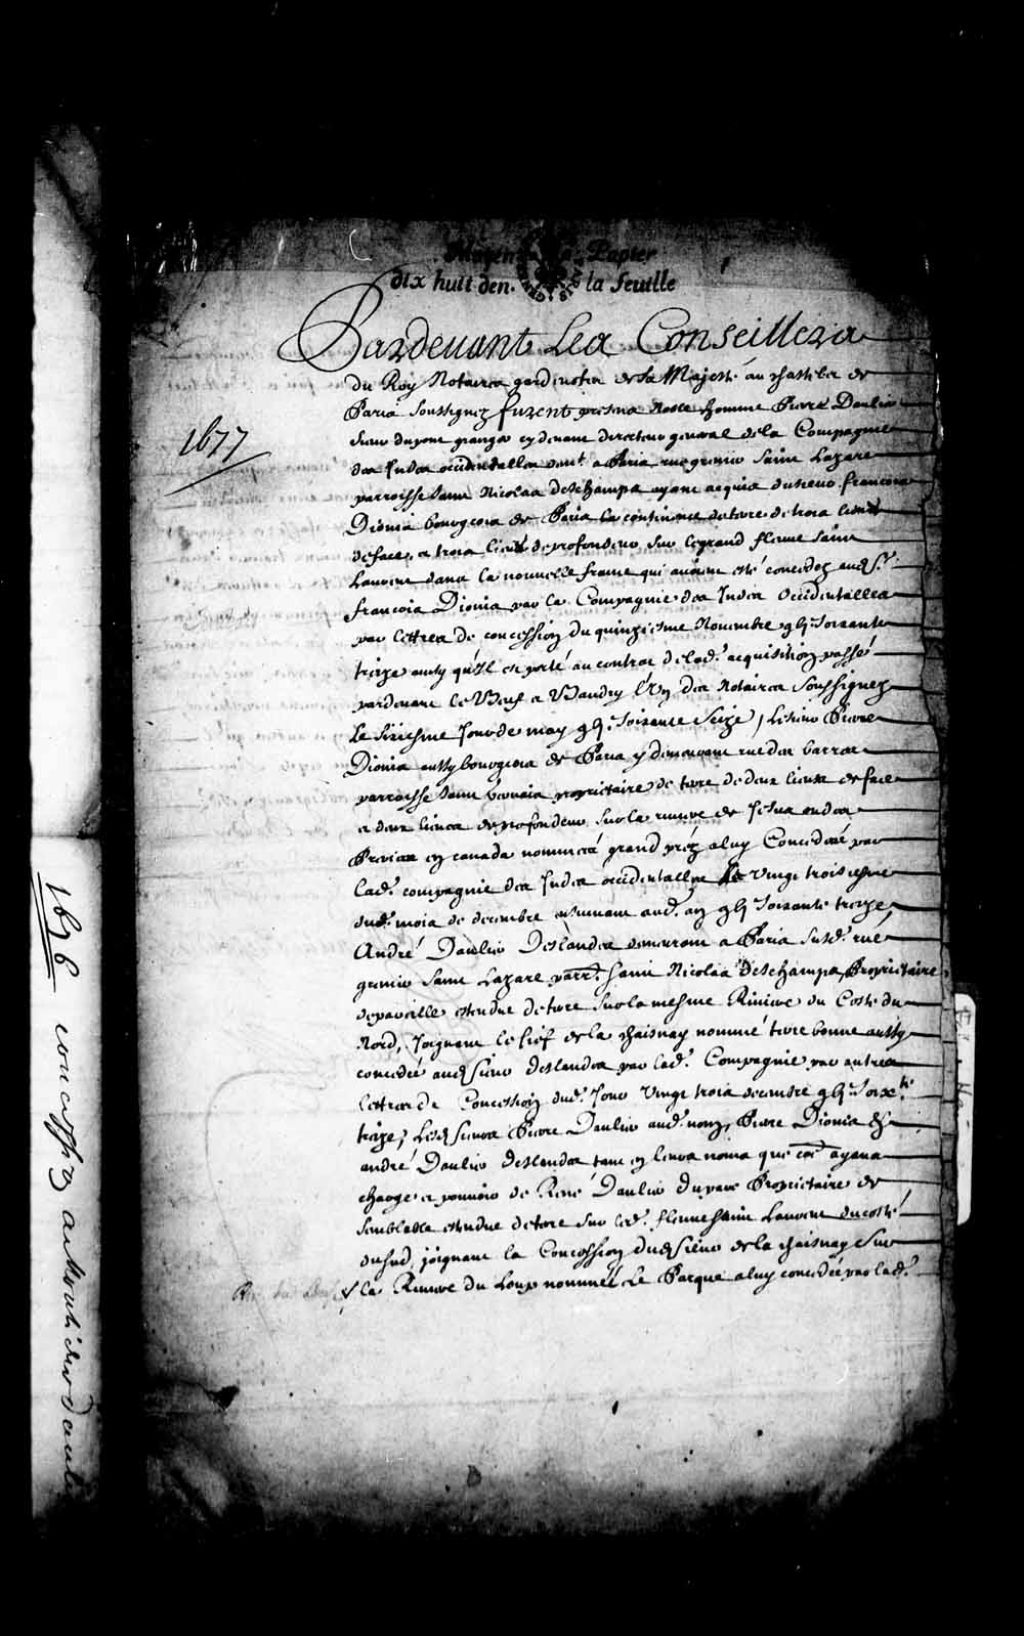 Moyen Papier
dix huit den. la feuille
1677
Pardeuant Les Conseillers
du Roy Notaires gardenottes de Sa Majesté au chastelet de
Paris soussignez furent presens Noble homme Pierre Daulier
sieur duport cy deuant directeur general de la Compagnie
des Indes occidentalles demt. a Paris rue grenier Saint Lazare
parroisse Saint Nicolas deschamps ayant acquis du sieur francois
Dionis bourgeois de Paris la continence de terre de trois lieues
de face, et trois lieues de profondeur sur le grand fleuue Saint
Laurent dans la nouuelle france qui auoient esté concedez aud. Sr.
francois Dionis par la Compagnie des Indes Occidentalles
par lettres de concession du quinziesme Nouembre gbj. soixante
treize ainsy qu'il est porté au contrat de lad. acquisition passé
pardeuant Le Beuf et Baudry l'un des Notaires soussignez
Le sixiesme Jour de may gbj. soixante seize, Le sieur Pierre
Dionis aussy bourgeois de Paris y demeurant rue des barres
parroisse Saint Geruais proprietaire de terre de deux lieues de face
et deux lieues de profondeur sur la riuiere de Jesus ou des
Preries en canada nommeé grand prez a luy Concedeé par
lad. compagnie des Indes occidentalles le vingt troisiesme
dud. mois de decembre aud. an gbj. soixante treize,
André Daulier Deslandes demeurant a Paris susd. rue
grenier Saint Lazare parr. Saint Nicolas deschamps, Proprietaire
de pareille estendue de terre sur la mesme Riuiere du Costé du
Nord, Joignant le fief de la chaisnay nommé terre bonne aussy
concedée aud. sieur deslandes par lad. Compagnie par autres
lettres de Concession dud. Jour vingt trois decembre gbj. soixte.
treize, Lesd. sieurs Pierre Daulier aud. nom, Pierre Dionis et
andré Daulier deslandes tant en leurs noms que co͞e ayans
charge et pouuoir de René Daulier duparc Proprietaire de
semblable estendue de terre sur led. fleuue Saint Laurent du costé
du sud, joignant la Concession dud. sieur de la chaisnay sur
la Riuiere du Loup nommeé Le Parque a luy concedée par lad.
1676 concession